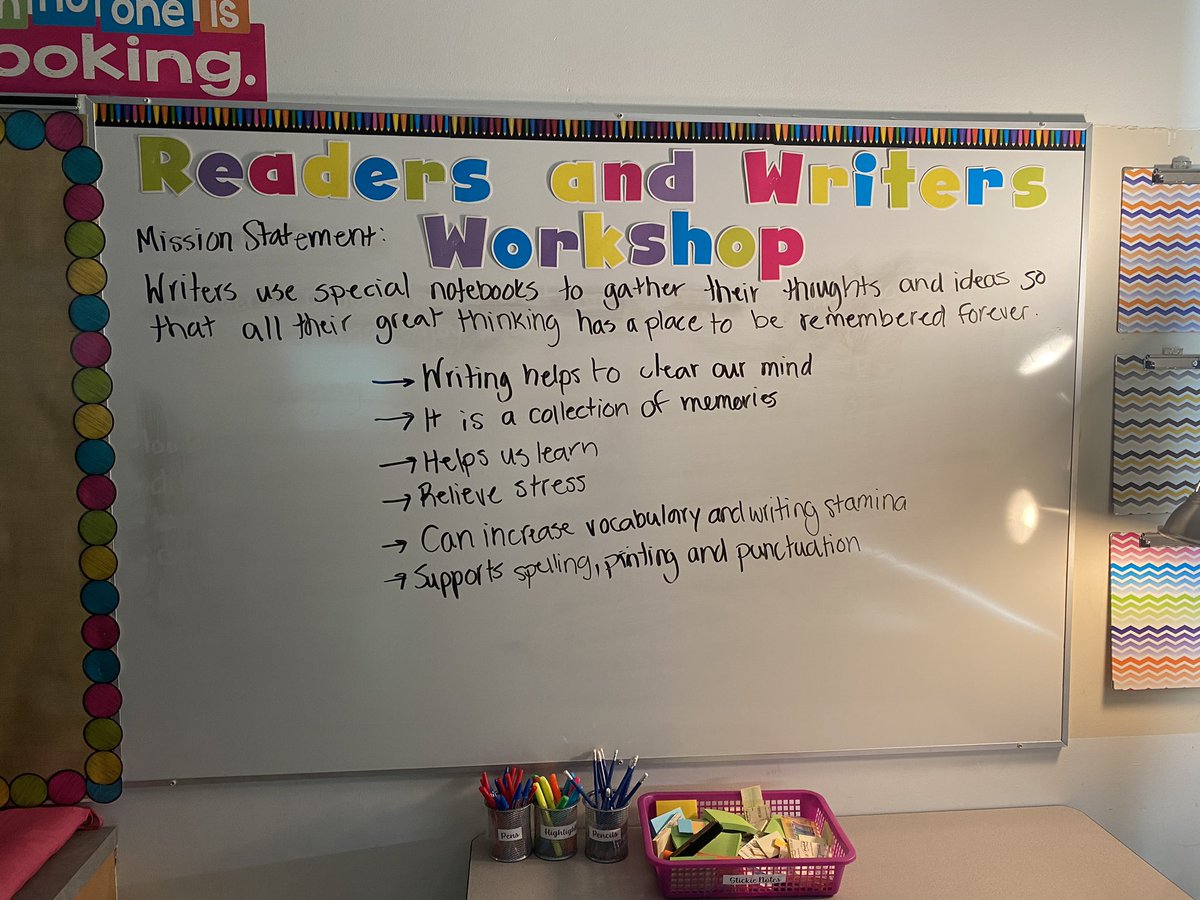 no one is
ooking.
Readers and Writers
Workshop
Mission Statement:
Writers use special notebooks to gather their thoughts and ideas so
that all their great thinking has a place to be remembered forever.
→ Writing helps to clear our mind
→ It is a collection of memories
→ Helps us learn
→ Relieve stress
→ Can increase vocabulary and writing stamina
→ Supports spelling, printing and punctuation
Pens
Highlight
Pencils
Stickie Notes